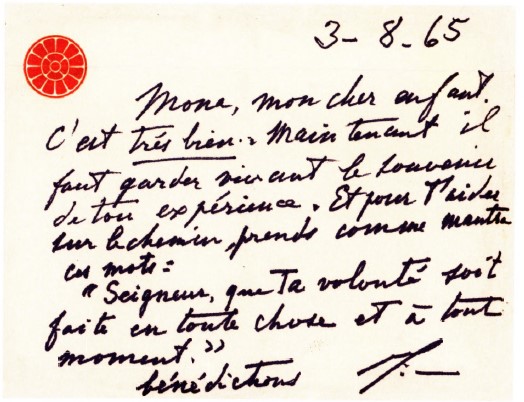 3-8-65
Mona, mon cher enfant.
C'est très bien. Maintenant il
faut garder vivant le souvenir
de ton expérience. Et pour t'aider
sur le chemin, prends comme mantra
ces mots :
"Seigneur, que Ta volonté soit
faite en toute chose et à tout
moment."
bénédictions